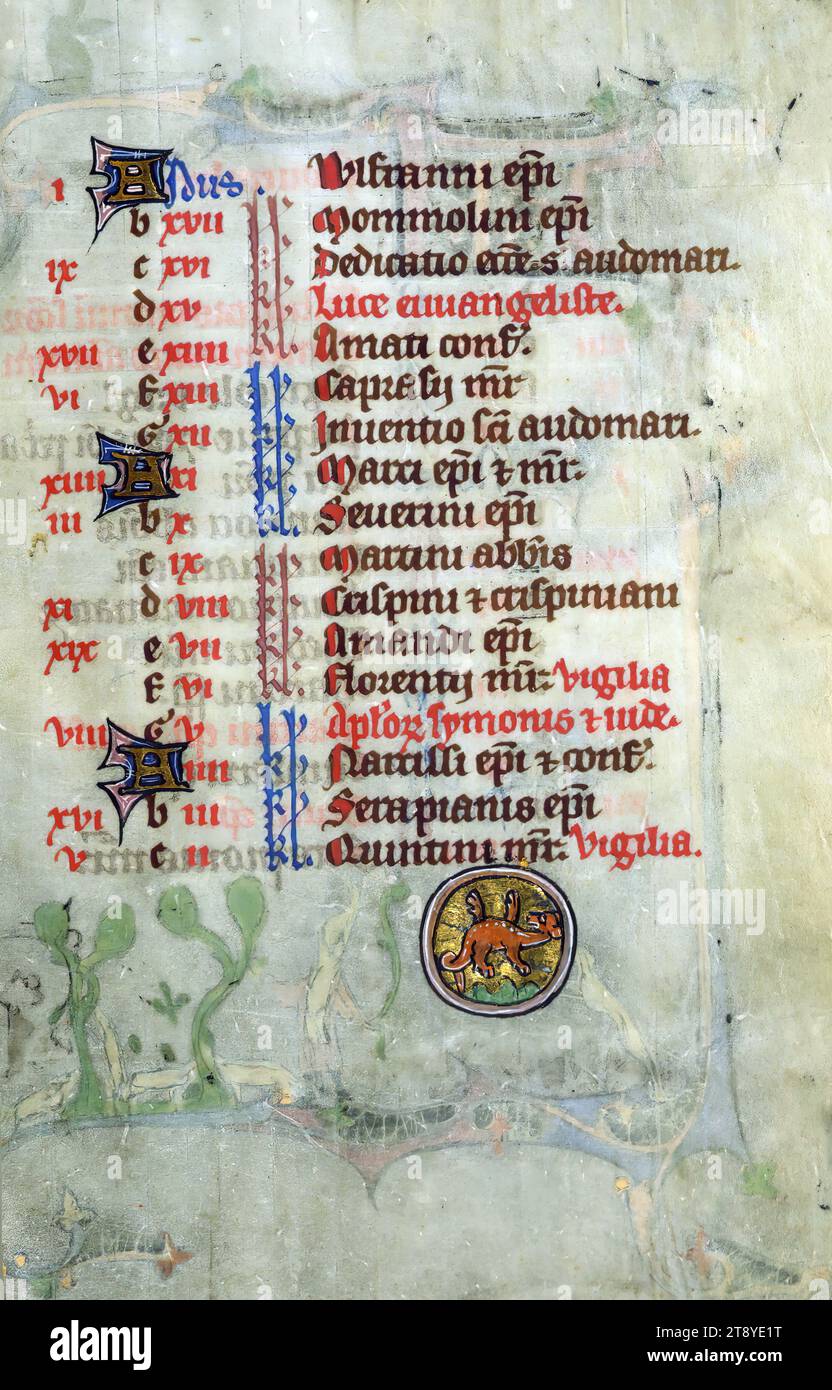 i A Idus. Wlfranni ep̃i
b xvii kł. Mommolini ep̃i
ix c xvi kł. Dedicatio ecc̃e s. audomari.
d xv kł. Luce euuangeliste.
xvii e xiiii kł. Amati conf̃.
vi f xiii kł. Caprasii mr̃
G xii kł. Inuentio sc̃i audomari.
xiiii A xi kł. Marci ep̃i ⁊ mr̃.
iii b x kł. Seuerini ep̃i
c ix kł. Martini abb̃is
xi d viii kł. Crispini ⁊ crispiniani
xix e vii kł. Amandi ep̃i
f vi kł. Florentij mr̃. vigilia
viii G v kł. Apl̃oꝝ symonis ⁊ iude.
A iiii kł. Narcissi ep̃i ⁊ conf̃.
xvi b iii kł. Serapianis ep̃i
v c ii kł. Quintini mr̃. vigilia.
alamy
alamy
Image ID: 2T8YE1T
www.alamy.com